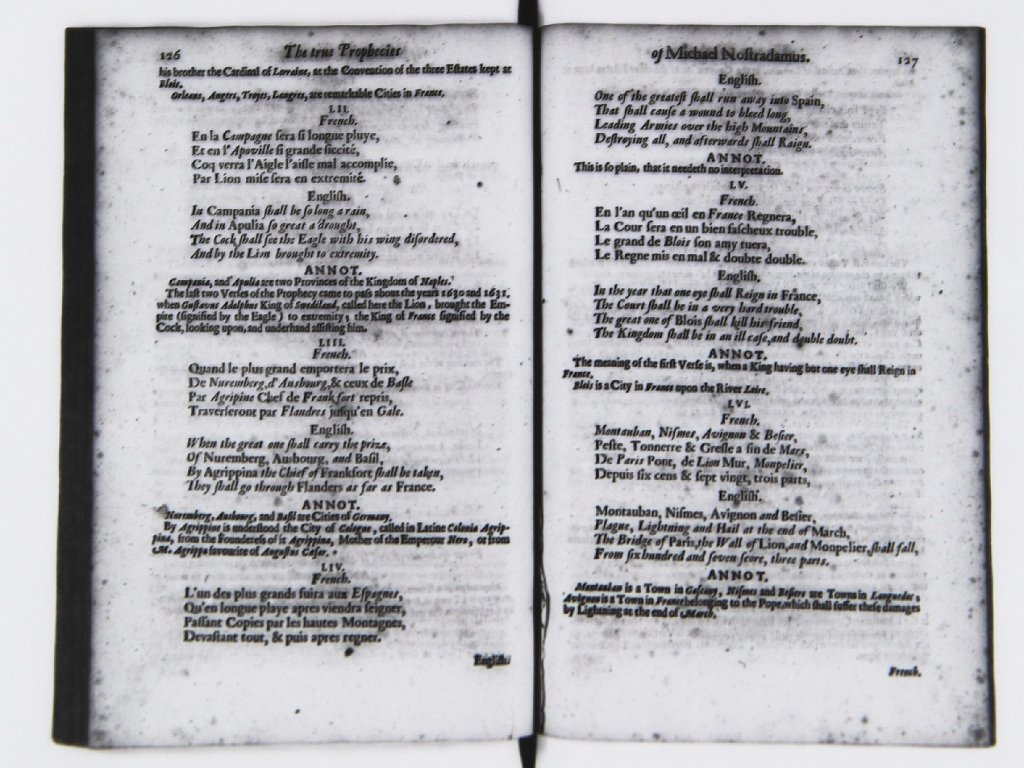 126 The true Prophecies
his brother the Cardinal of Lorraine, at the Convention of the three Estates kept at
Blois.
Orleans, Angers, Troyes, Langres, are remarkable Cities in France.
LII.
French.
En la Campagne sera si longue pluye,
Et en l'Apoville si grande siccité,
Coq verra l'Aigle l'aisle mal accomplie,
Par Lion mise sera en extremité.
English.
In Campania shall be so long a rain,
And in Apulia so great a drought,
The Cock shall see the Eagle with his wing disordered,
And by the Lion brought to extremity.
ANNOT.
Campania, and Apulia are two Provinces of the Kingdom of Naples.
The last two Verses of the Prophecy came to pass about the years 1630 and 1631.
when Gustavus Adolphus King of Swedeland, called here the Lion, brought the Em-
pire (signified by the Eagle) to extremity; the King of France signified by the
Cock, looking upon, and underhand assisting him.
LIII.
French.
Quand le plus grand emportera le prix,
De Nuremberg, d'Ausbourg, & ceux de Basle
Par Agripine Chef de Frankfort repris,
Traverseront par Flandres jusqu'en Gale.
English.
When the great one shall carry the prize,
Of Nuremberg, Ausbourg, and Basil,
By Agrippina the Chief of Frankfort shall be taken,
They shall go through Flanders as far as France.
ANNOT.
Nuremberg, Ausbourg, and Basil are Cities of Germany.
By Agrippine is understood the City of Cologne, called in Latine Colonia Agrip-
pina, from the Foundress of it Agrippina, Mother of the Emperour Nero, or from
M. Agrippa favourite of Augustus Cæsar.
LIV.
French.
L'un des plus grands fuira aux Espagnes,
Qu'en longue playe apres viendra seigner,
Passant Copies par les hautes Montagnes,
Devastant tout, & puis apres regner.
English:
of Michael Nostradamus. 127
English.
One of the greatest shall run away into Spain,
That shall cause a wound to bleed long,
Leading Armies over the high Mountains,
Destroying all, and afterwards shall Raign.
ANNOT.
This is so plain, that it needeth no interpretation.
LV.
French.
En l'an qu'un œil en France Regnera,
La Cour sera en un bien fascheux trouble,
Le grand de Blois son amy tuera,
Le Regne mis en mal & doubte double.
English.
In the year that one eye shall Reign in France,
The Court shall be in a very hard trouble,
The great one of Blois shall kill his friend,
The Kingdom shall be in an ill case, and double doubt.
ANNOT.
The meaning of the first Verse is, when a King having but one eye shall Reign in
France.
Blois is a City in France upon the River Loire.
LVI.
French.
Montauban, Nismes, Avignon & Besier,
Peste, Tonnerre & Gresle a fin de Mars,
De Paris Pont, de Lion Mur, Monpelier,
Depuis six cens & sept vingt, trois parts,
English.
Montauban, Nismes, Avignon and Besier,
Plague, Lightning and Hail at the end of March,
The Bridge of Paris, the Wall of Lion, and Monpelier, shall fall,
From six hundred and seven score, three parts.
ANNOT.
Montauban is a Town in Gascony, Nismes and Besiers are Towns in Languedoc;
Avignon is a Town in France belonging to the Pope, which shall suffer these damages
by Lightning at the end of March.
French.